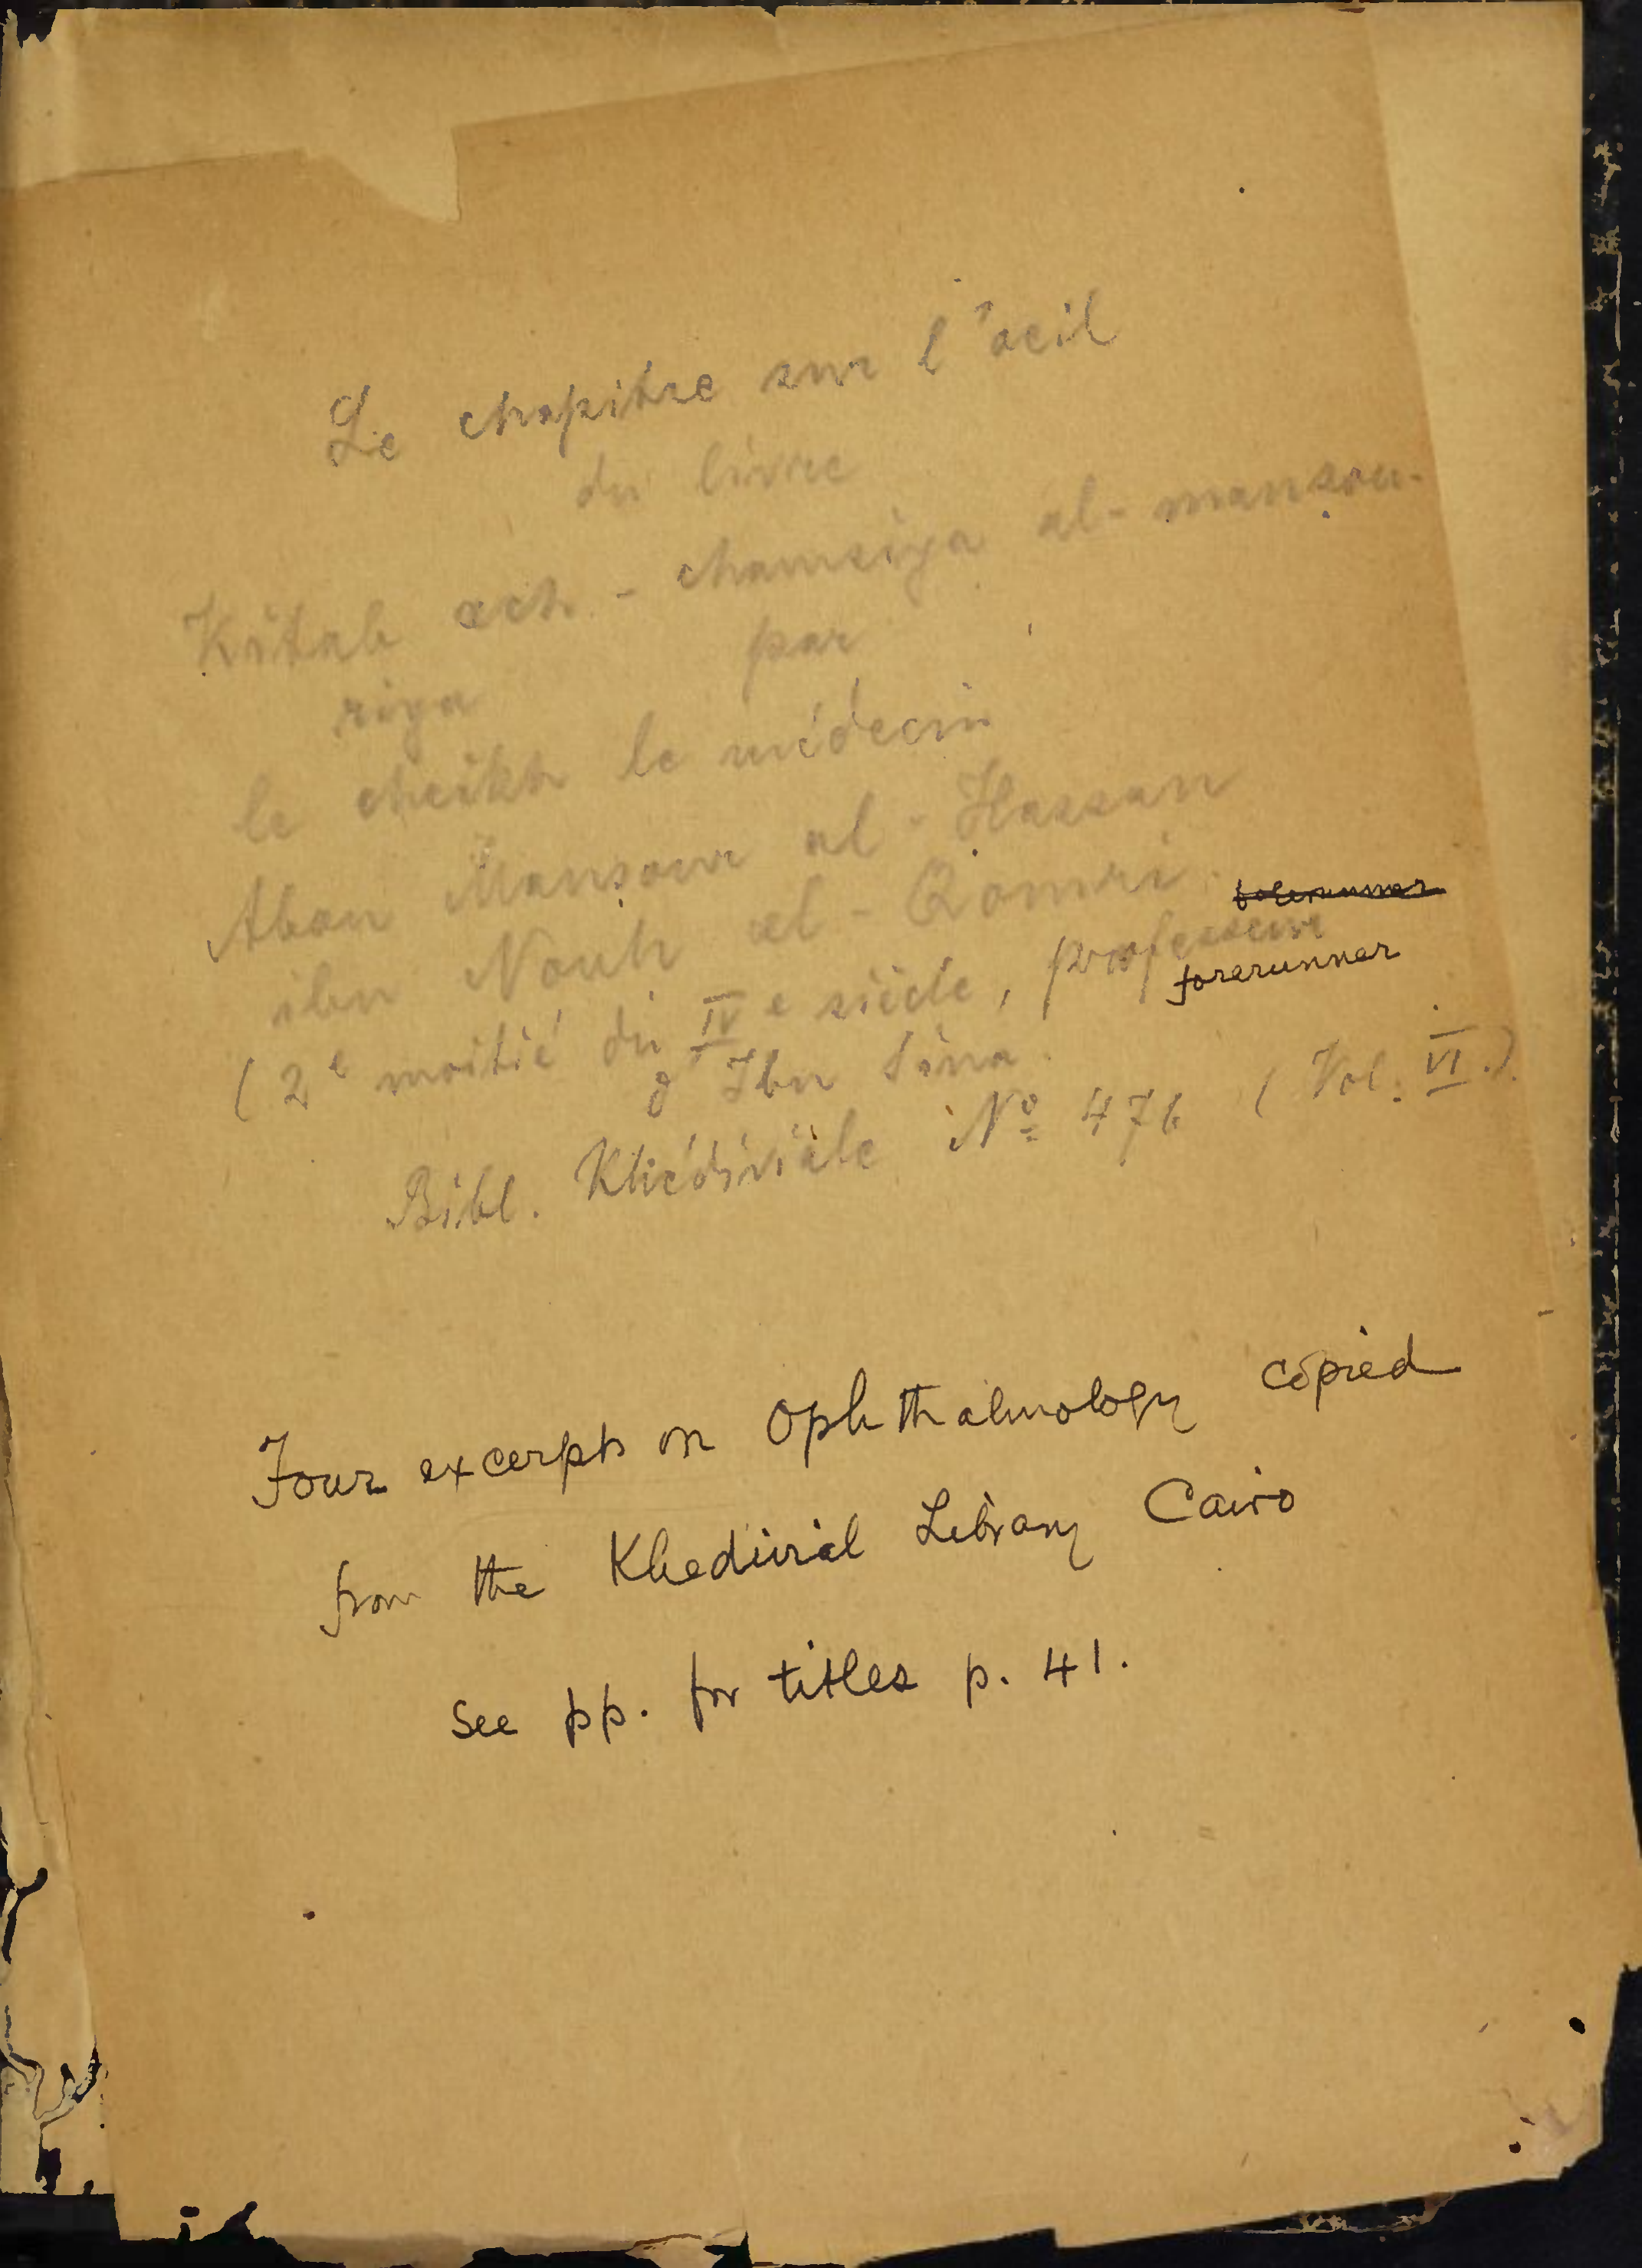 Le chapitre sur l'oeil
du livre
Kitab ach-chamsiya al-mansou-
riya par
le cheikh le médecin
Abou Mansour al-Hassan
ibn Nouh al-Qomri.
forerunner
(2e moitié du IVe siècle, professeur
forerunner
d'Ibn Sina.
Bibl. Khédiviale No 476 (Vol. VI.)
Four excerpts on Ophthalmology copied
from the Khedivial Library Cairo
See pp. for titles p. 41.